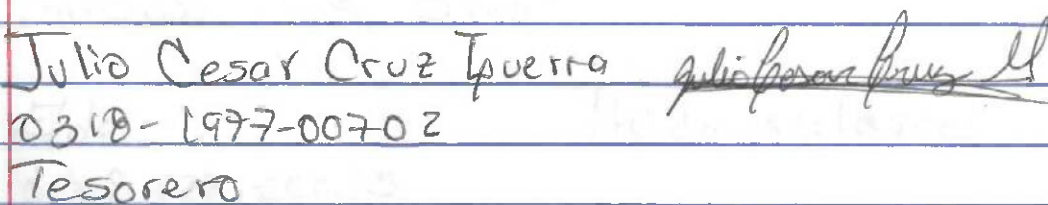 Julio Cesar Cruz Iguerra Julio Cesar Cruz
0318-1977-00702
Tesorero